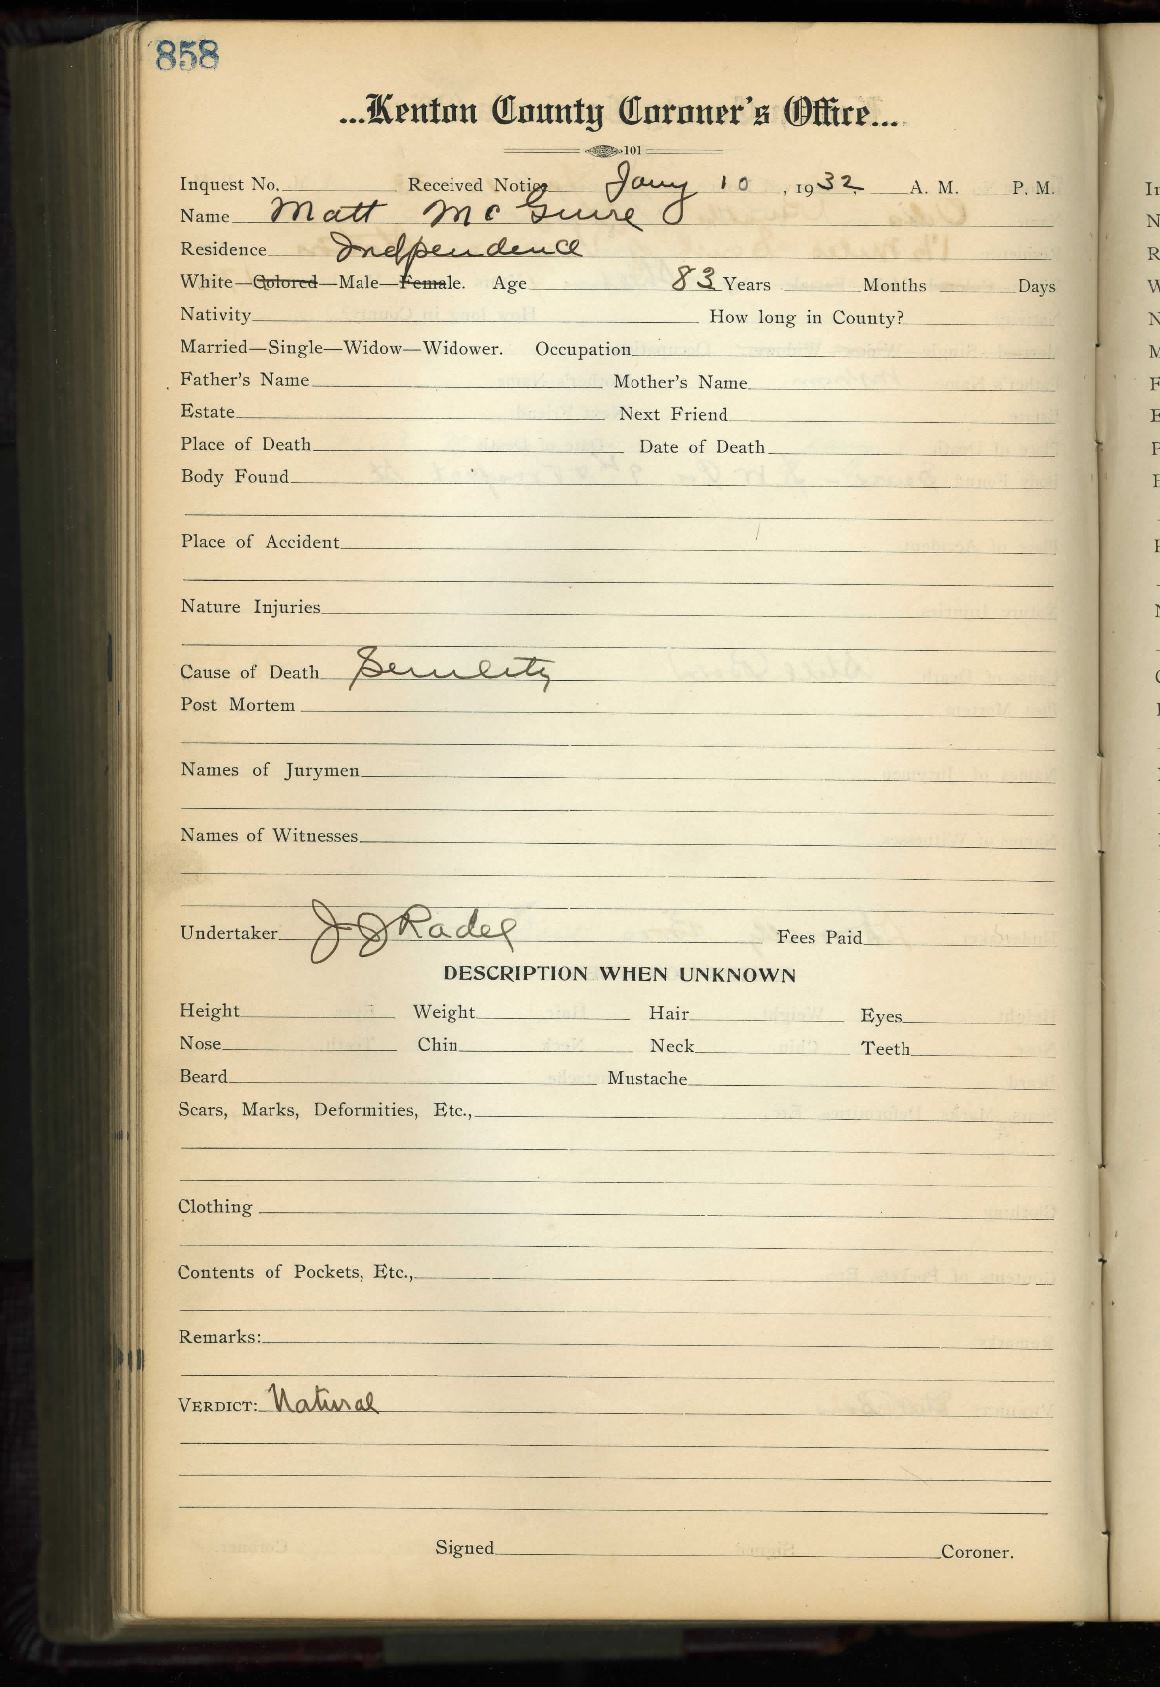 858
...Kenton County Coroner's Office...
101
Inquest No. Received Notice Jany 10, 1932 A. M. P. M.
Name Matt McGuire
Residence Indpendence
White—Colored—Male—Female. Age 83 Years Months Days
Nativity How long in County?
Married—Single—Widow—Widower. Occupation
Father's Name Mother's Name
Estate Next Friend
Place of Death Date of Death
Body Found
Place of Accident
Nature Injuries
Cause of Death Senility
Post Mortem
Names of Jurymen
Names of Witnesses
Undertaker J J Radel Fees Paid
DESCRIPTION WHEN UNKNOWN
Height Weight Hair Eyes
Nose Chin Neck Teeth
Beard Mustache
Scars, Marks, Deformities, Etc.,
Clothing
Contents of Pockets, Etc.,
Remarks:
VERDICT: Natural
Signed Coroner.